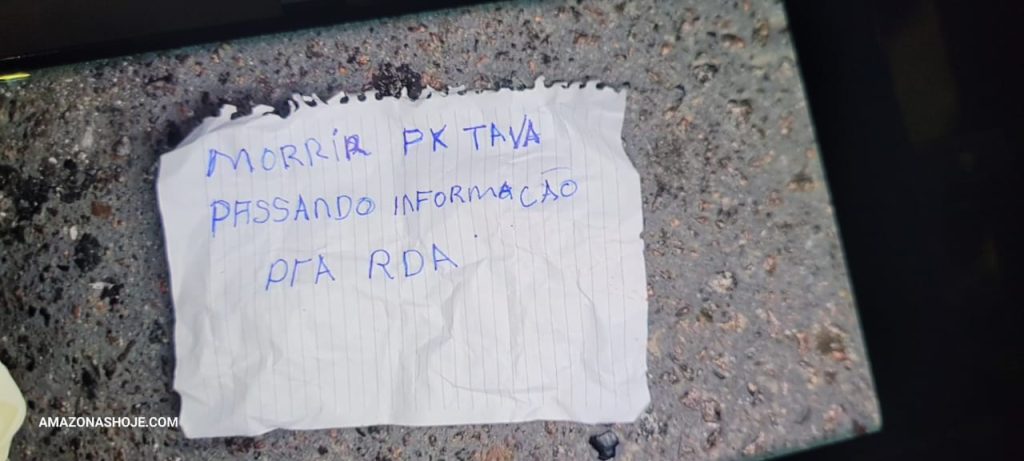 MORRIR PK TAVA
PASSANDO INFORMAÇÃO
PRA RDA
AMAZONASHOJE.COM